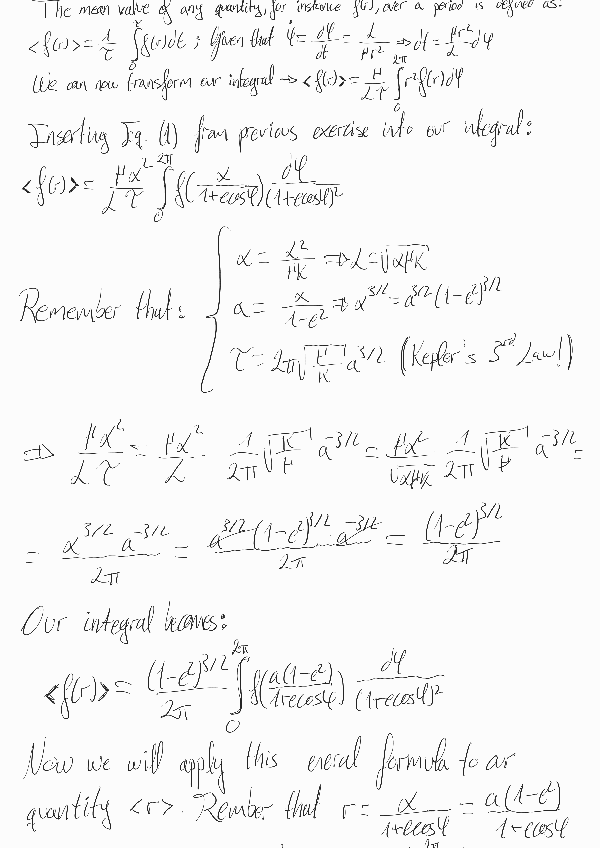 The mean value of any quantity, for instance f(r), over a period is defined as:
<f(r)> = 1/τ ∫₀^τ f(r)dt ; Given that φ̇ = dφ/dt = L/μr² ⇒ dt = μr²/L dφ
We can now transform our integral → <f(r)> = μ/Lτ ∫₀^2π r²f(r)dφ
Inserting Eq. (1) from previous exercise into our integral:
<f(r)> = μα²/Lτ ∫₀^2π f(α/1+ecosφ) dφ/(1+ecosφ)²
α = L²/μK ⇒ L = √αμK
Remember that: a = α/1-e² ⇒ α^3/2 = a^3/2 (1-e²)^3/2
τ = 2π√μ/K a^3/2 (Kepler's 3rd Law!)
⇒ μα²/Lτ = μα²/L 1/2π √K/μ a^-3/2 = μα²/√αμK 1/2π √K/μ a^-3/2 =
= α^3/2 a^-3/2/2π = a^3/2 (1-e²)^3/2 a^-3/2/2π = (1-e²)^3/2/2π
Our integral becomes:
<f(r)> = (1-e²)^3/2/2π ∫₀^2π f(a(1-e²)/1+ecosφ) dφ/(1+ecosφ)²
Now we will apply this eneral formula to ar
quantity <r>. Rember that r = α/1+ecosφ = a(1-e²)/1+ecosφ